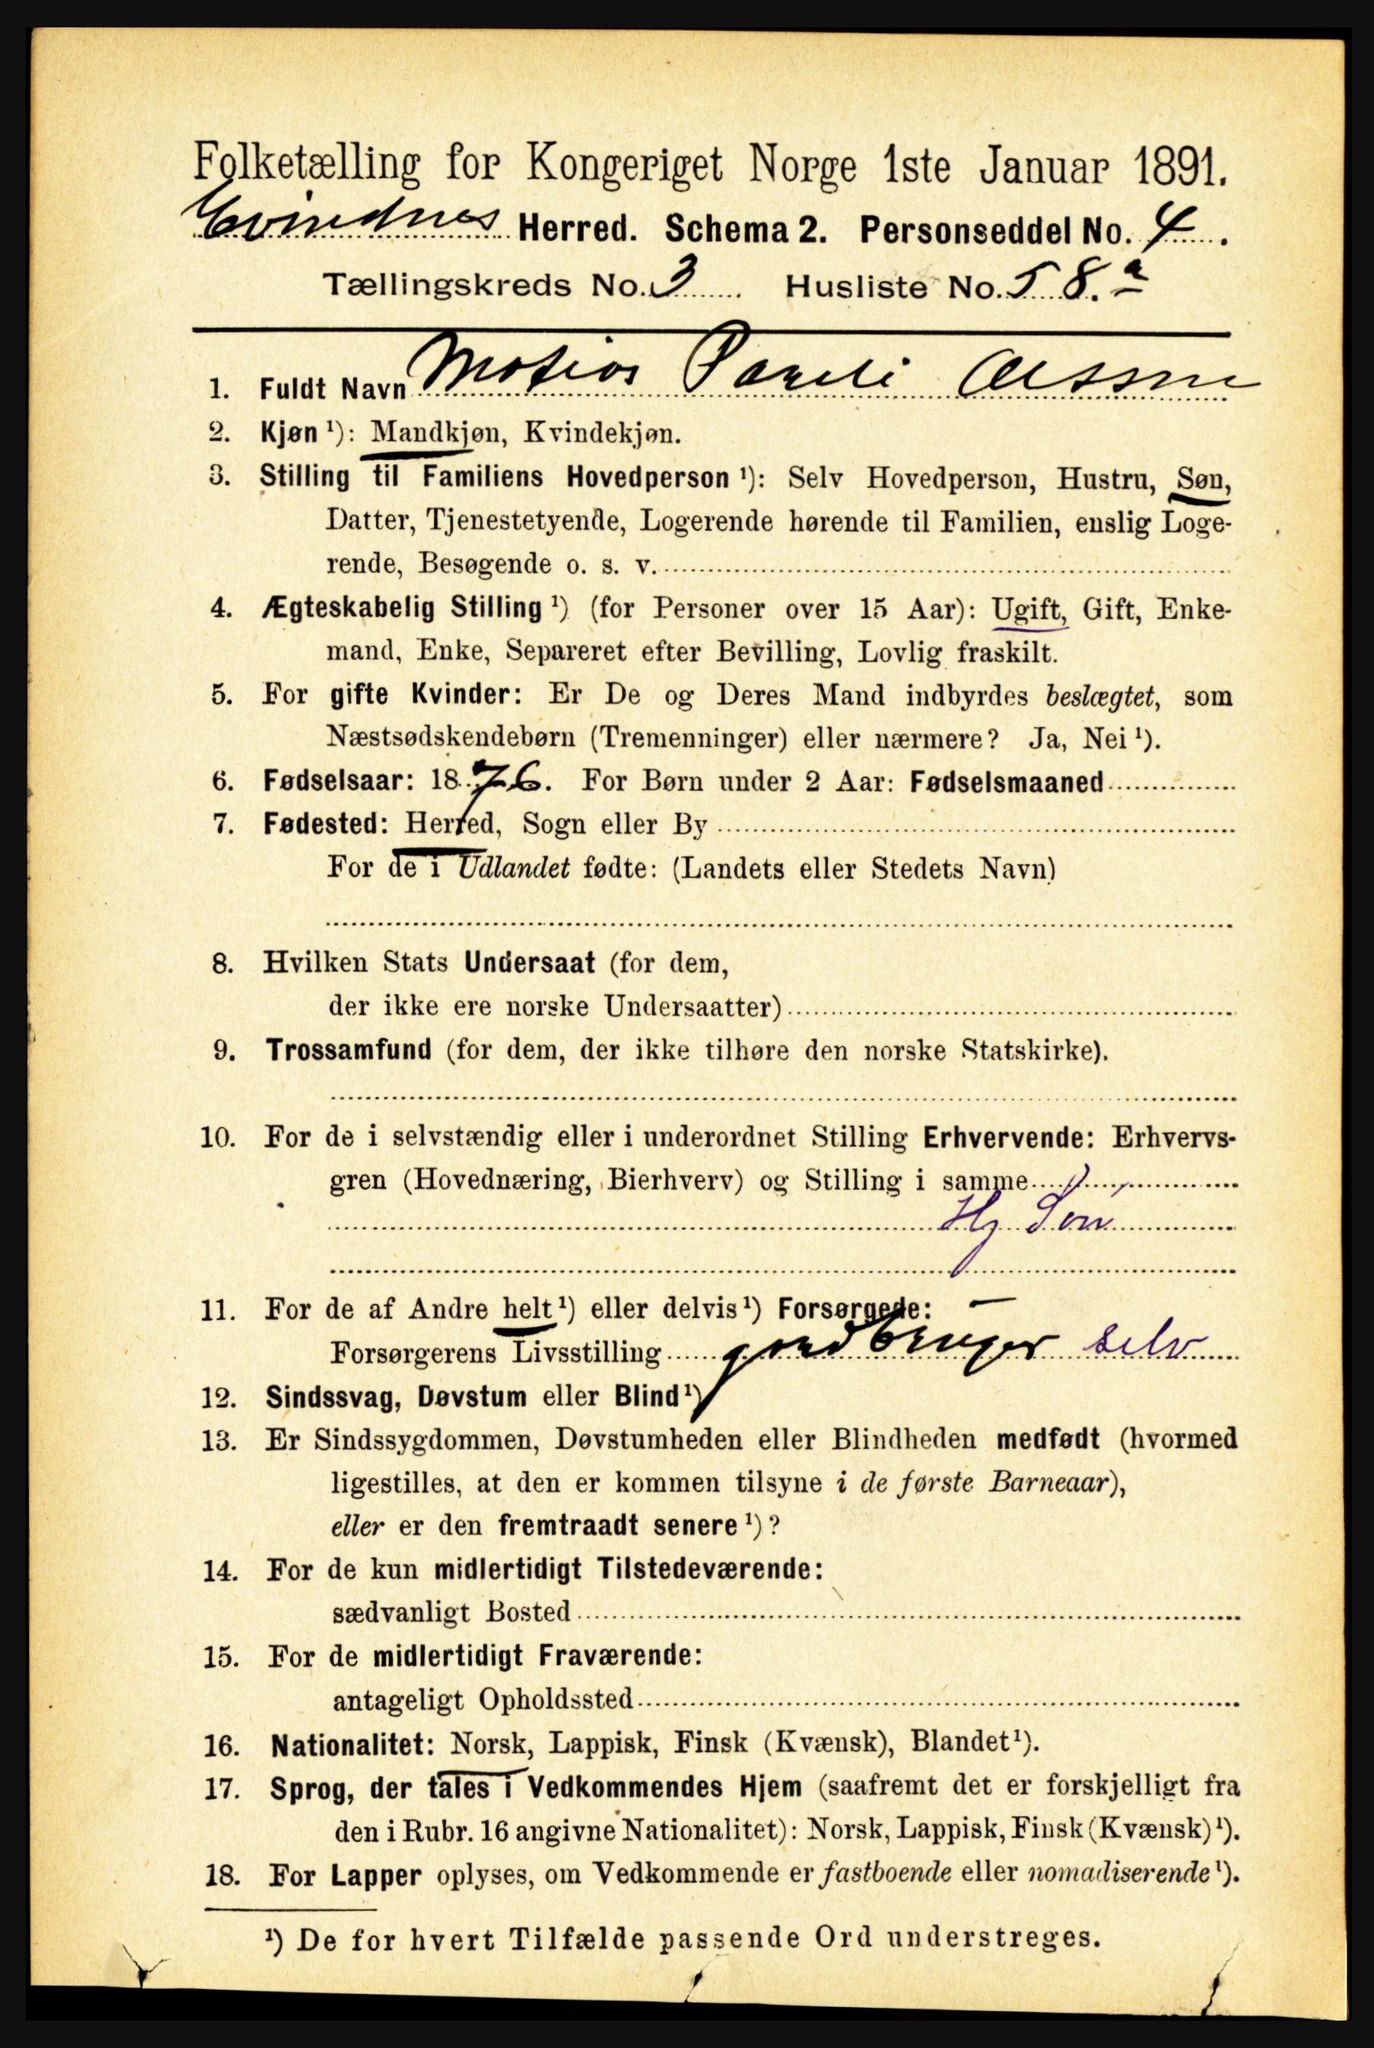 Folketælling for Kongeriget Norge 1ste Januar 1891.
Evindnes Herred. Schema 2. Personseddel No. 4.
Tællingskreds No. 3 Husliste No. 58.a
1. Fuldt Navn Motias Pareli Olssen
2. Kjøn ¹): Mandkjøn, Kvindekjøn.
3. Stilling til Familiens Hovedperson ¹): Selv Hovedperson, Hustru, Søn,
Datter, Tjenestetyende, Logerende hørende til Familien, enslig Loge-
rende, Besøgende o. s. v.
4. Ægteskabelig Stilling ¹) (for Personer over 15 Aar): Ugift, Gift, Enke-
mand, Enke, Separeret efter Bevilling, Lovlig fraskilt.
5. For gifte Kvinder: Er De og Deres Mand indbyrdes beslægtet, som
Næstsødskendebørn (Tremenninger) eller nærmere? Ja, Nei ¹).
6. Fødselsaar: 1876. For Børn under 2 Aar: Fødselsmaaned
7. Fødested: Herred, Sogn eller By
For de i Udlandet fødte: (Landets eller Stedets Navn)
8. Hvilken Stats Undersaat (for dem,
der ikke ere norske Undersaatter)
9. Trossamfund (for dem, der ikke tilhøre den norske Statskirke).
10. For de i selvstændig eller i underordnet Stilling Erhvervende: Erhvervs-
gren (Hovednæring, Bierhverv) og Stilling i samme
Hj Søn
11. For de af Andre helt ¹) eller delvis ¹) Forsørgede: —
Forsørgerens Livsstilling gaardbruger selv
12. Sindssvag, Døvstum eller Blind ¹)
13. Er Sindssygdommen, Døvstumheden eller Blindheden medfødt (hvormed
ligestilles, at den er kommen tilsyne i de første Barneaar),
eller er den fremtraadt senere ¹)?
14. For de kun midlertidigt Tilstedeværende:
sædvanligt Bosted
15. For de midlertidigt Fraværende:
antageligt Opholdssted
16. Nationalitet: Norsk, Lappisk, Finsk (Kvænsk), Blandet ¹).
17. Sprog, der tales i Vedkommendes Hjem (saafremt det er forskjelligt fra
den i Rubr. 16 angivne Nationalitet): Norsk, Lappisk, Finsk (Kvænsk) ¹).
18. For Lapper oplyses, om Vedkommende er fastboende eller nomadiserende ¹).
¹) De for hvert Tilfælde passende Ord understreges.